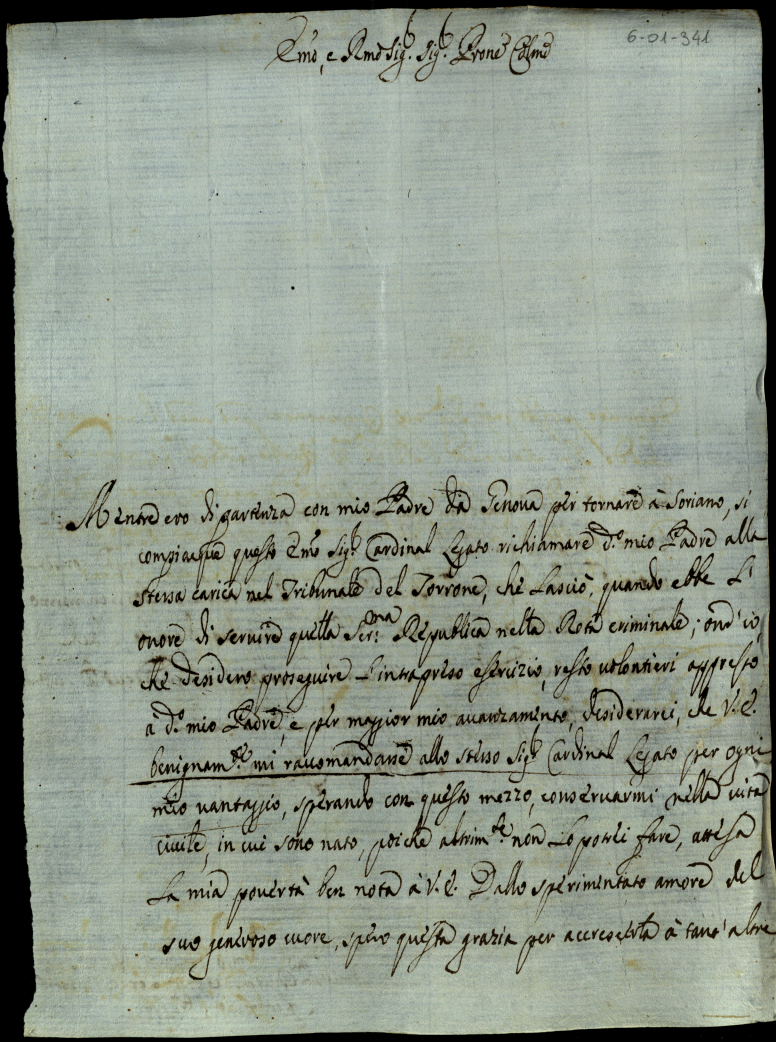 6-01-341
Emo, e Rmo Sig.r Sig.r Prone Colmo
Mentre ero di partenza con mio Padre da Genova per tornare à Soriano, si
compiacque questo Emo Sig.r Cardinal Legato richiamare d.o mio Padre alla
stessa carica nel Tribunale del Torrone, che lasciò, quando ebbe l'
onore di servire questa Ser.ma Republica nella Rota criminale; ond' io,
che desidero proseguire l'intrapreso esercizio, resto volontieri appresso
à d.o mio Padre, e per maggior mio avanzamento, desiderarei, che V.E.
benignam.te mi raccomandasse allo stesso Sig.r Cardinal Legato per ogni
mio vantaggio, sperando con questo mezzo, conservarmi nella vita
civile, in cui sono nato, poiche altrim.te non lo potrei fare, attesa
la mia povertà ben nota à V.E. Dallo sperimentato amore del
suo generoso cuore, spero questa grazia per accrescerla à tant' altre